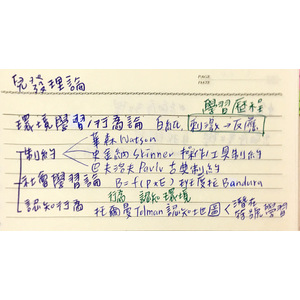 兒發理論
PAGE
DATE
學習歷程
環境學習/行為論 白紙 刺激→反應
華森 Watson
制約 史金納 Skinner 操作/工具制約
巴夫洛夫 Pavlv 古典制約
社會學習論 B=f(PxE) 班度拉 Bandura
行為 認知 環境
認知行為 托爾曼 Tolman 認知地圖 < 潛在
符號學習